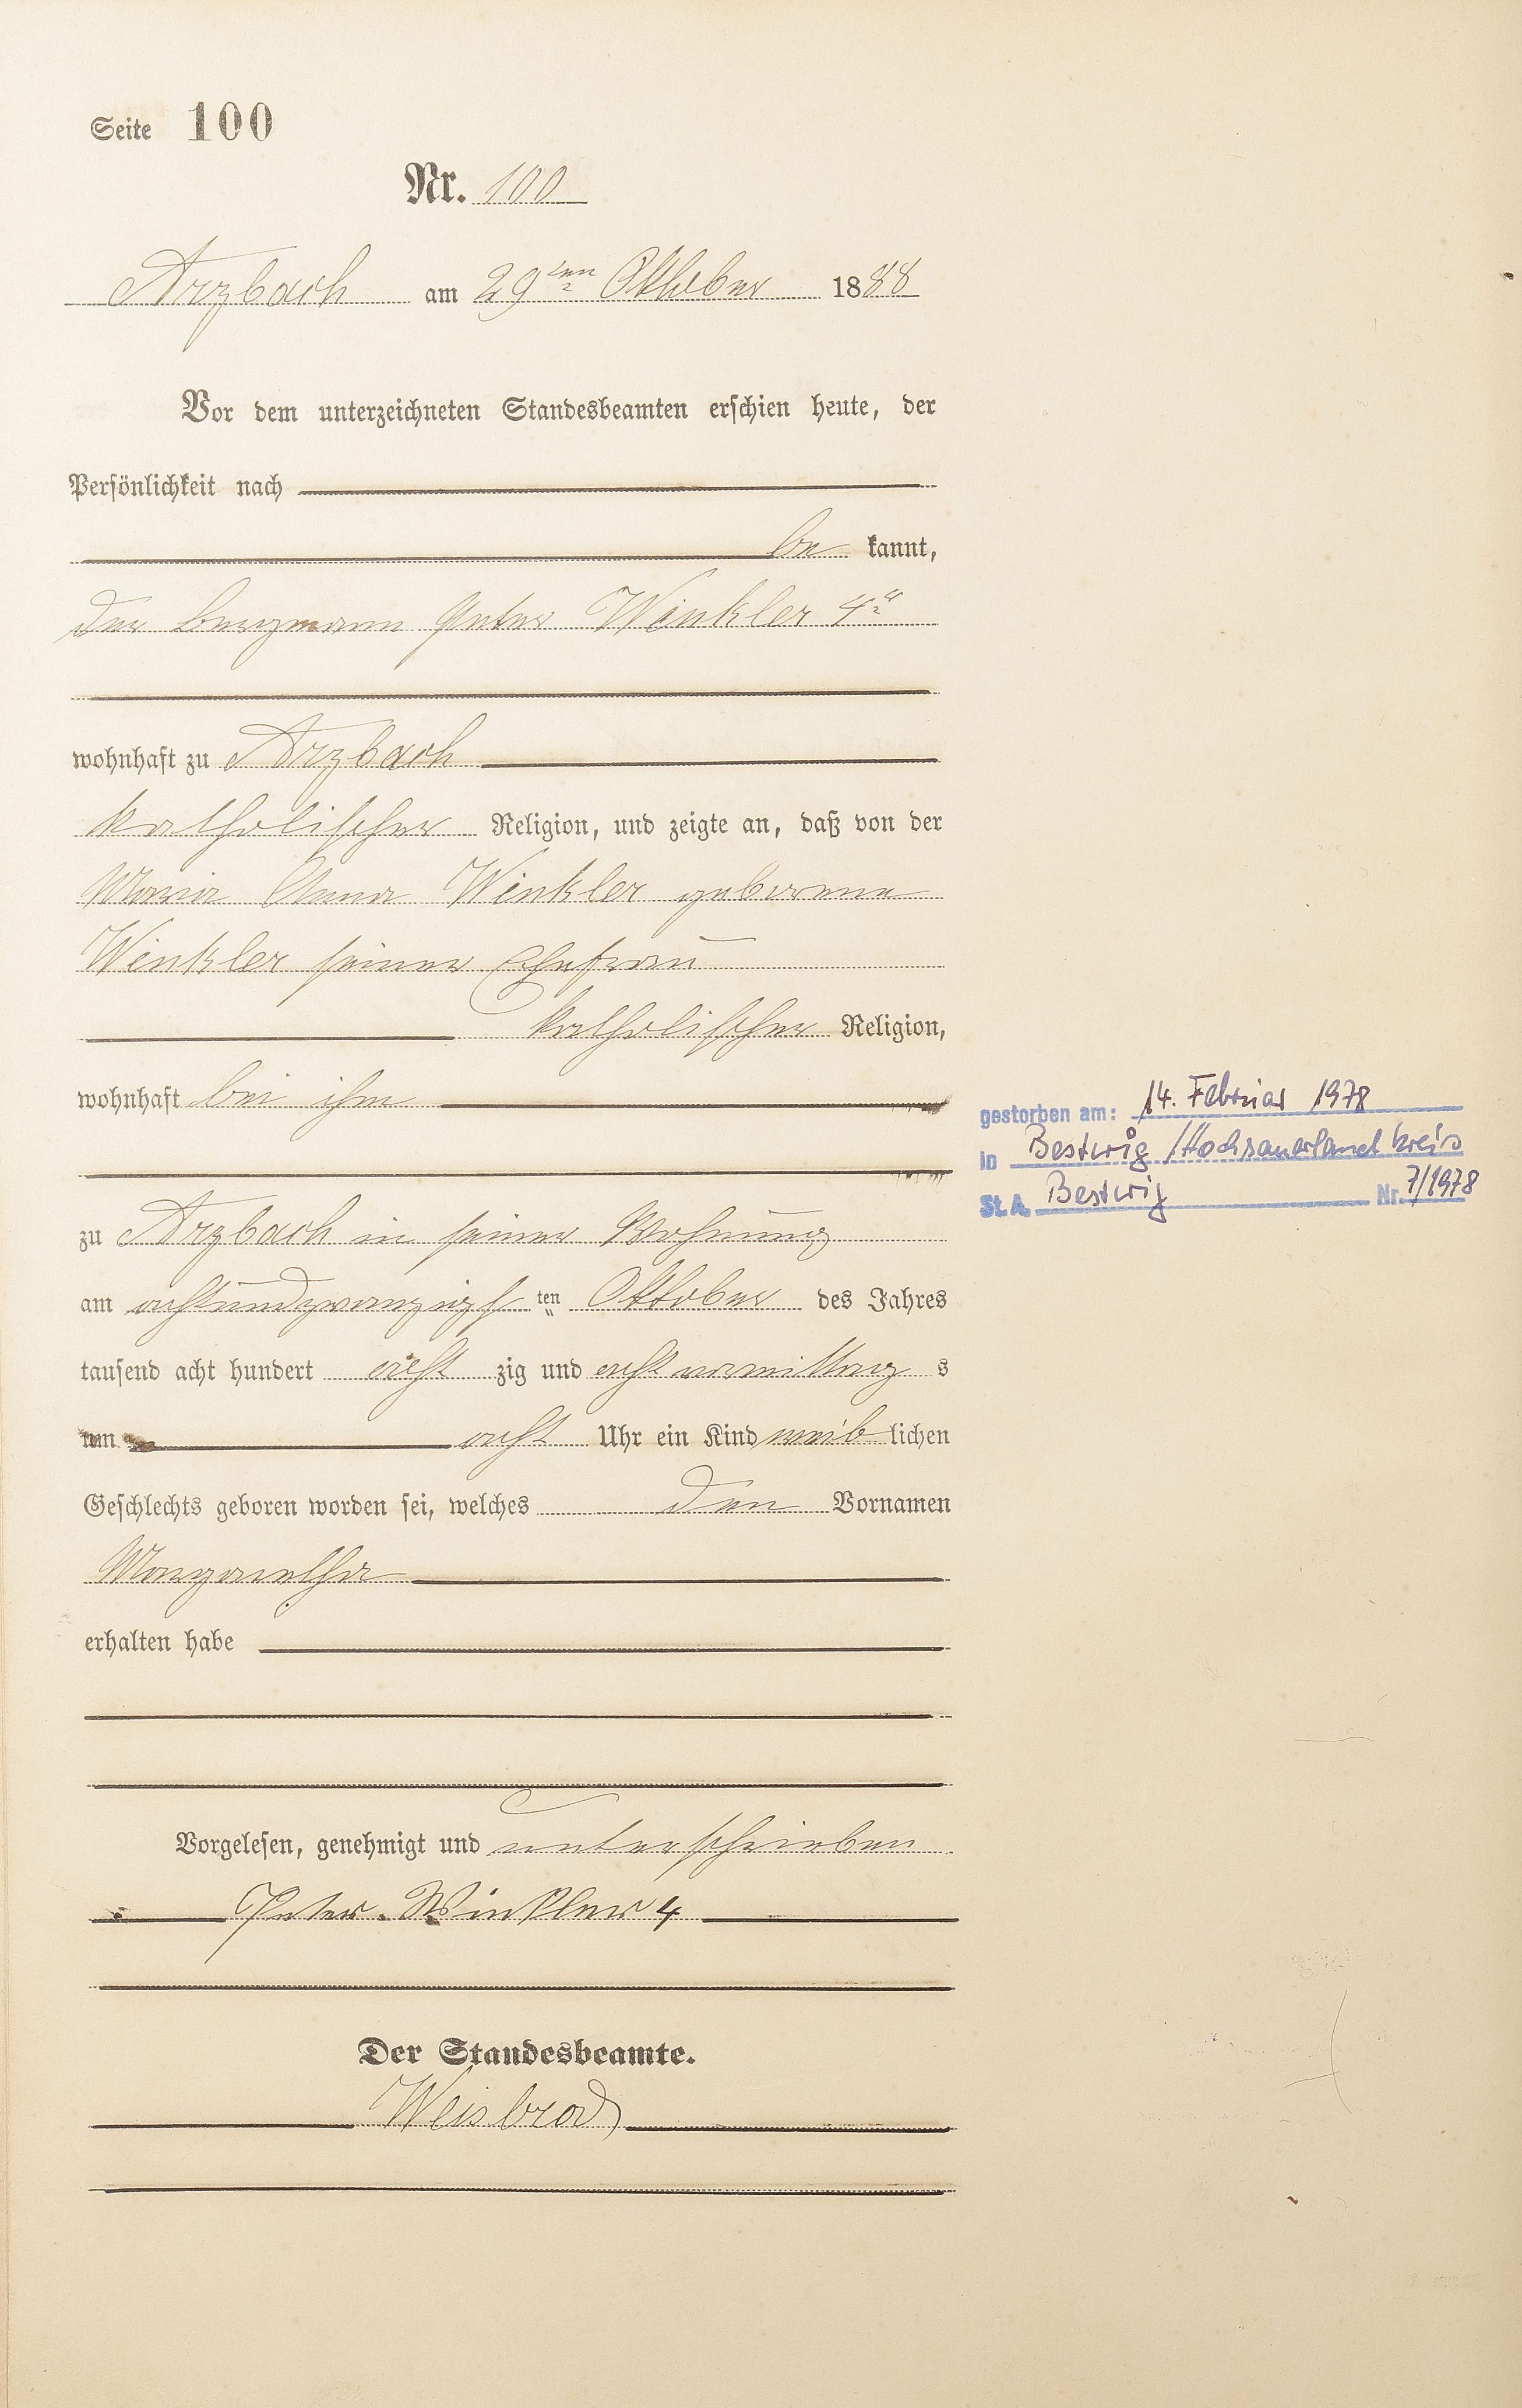 Seite 100
Nr. 100
Arzbach am 29ten Oktober 1888
Vor dem unterzeichneten Standesbeamten erschien heute, der
Persönlichkeit nach
be kannt,
der Bergmann Peter Winkler 4r
wohnhaft zu Arzbach
katholischer Religion, und zeigte an, daß von der
Maria Anna Winkler geborene
Winkler seiner Ehefrau
katholischer Religion,
wohnhaft bei ihm
zu Arzbach in seiner Wohnung
am achtundzwanzigst ten Oktober des Jahres
tausend acht hundert acht zig und acht vormittag s
um acht Uhr ein Kind weib lichen
Geschlechts geboren worden sei, welches den Vornamen
Margaretha
erhalten habe
Vorgelesen, genehmigt und unterschrieben
Peter Winkler 4
Der Standesbeamte.
Weisbrod
gestorben am: 14. Februar 1978
in Bestwig / Hochsauerlandkreis
St. A. Bestwig Nr. 7/1978